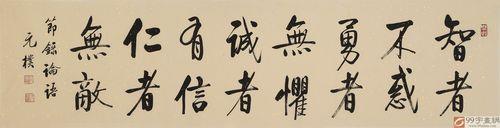 智者
不惑
勇者
無懼
誠者
有信
仁者
無敵
節錄論語
元樸
99字畫網